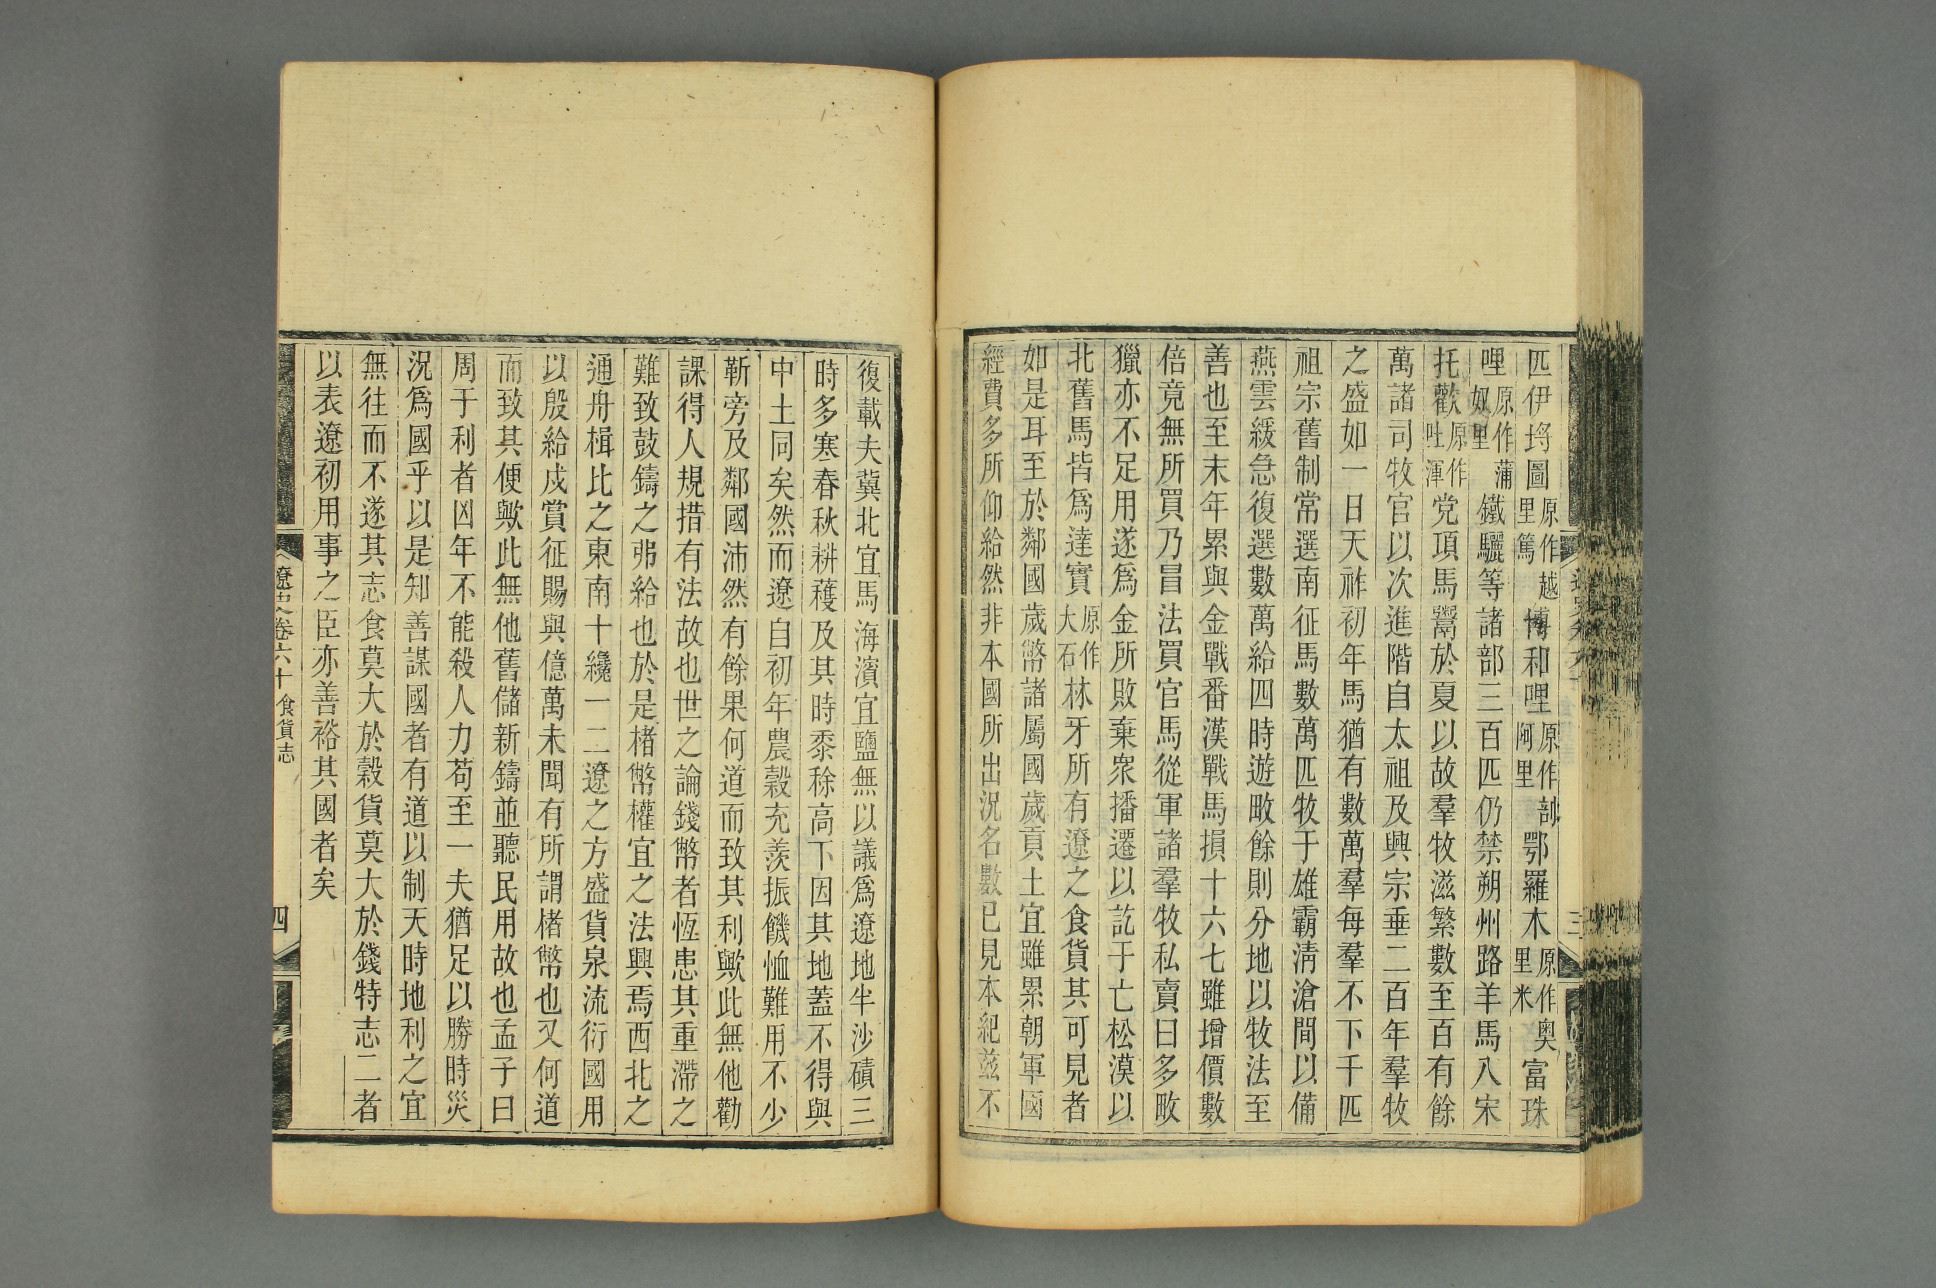 匹伊埒圖原作越里篤博和哩原作剖阿里鄂羅木原作奧里米富珠
哩原作蒲奴里鐵驪等諸部三百匹仍禁朔州路羊馬入宋
托歡原作吐渾党項馬鬻於夏以故羣牧滋繁數至百有餘
萬諸司牧官以次進階自太祖及興宗垂二百年羣牧
之盛如一日天祚初年馬猶有數萬羣每羣不下千匹
祖宗舊制常選南征馬數萬匹牧于雄霸淸滄間以備
燕雲緩急復選數萬給四時遊畋餘則分地以牧法至
善也至末年累與金戰番漢戰馬損十六七雖增價數
倍竟無所買乃冒法買官馬從軍諸羣牧私賣日多畋
獵亦不足用遂爲金所敗棄衆播遷以訖于亡松漠以
北舊馬皆爲達實原作大石林牙所有遼之食貨其可見者
如是耳至於鄰國歲幣諸屬國歲貢土宜雖累朝軍國
經費多所仰給然非本國所出況名數已見本紀茲不
復載夫冀北宜馬海濱宜鹽無以議爲遼地半沙磧三
時多寒春秋耕穫及其時黍稌高下因其地蓋不得與
中土同矣然而遼自初年農穀充羨振饑恤難用不少
靳旁及鄰國沛然有餘果何道而致其利歟此無他勸
課得人規措有法故也世之論錢幣者恆患其重滯之
難致鼓鑄之弗給也於是楮幣權宜之法興焉西北之
通舟楫比之東南十纔一二遼之方盛貨泉流衍國用
以殷給戍賞征賜與億萬未聞有所謂楮幣也又何道
而致其便歟此無他舊儲新鑄並聽民用故也孟子曰
周于利者凶年不能殺人力苟至一夫猶足以勝時災
況爲國乎以是知善謀國者有道以制天時地利之宜
無往而不遂其志食莫大於穀貨莫大於錢特志二者
以表遼初用事之臣亦善裕其國者矣
遼史卷六十 食貨志
四